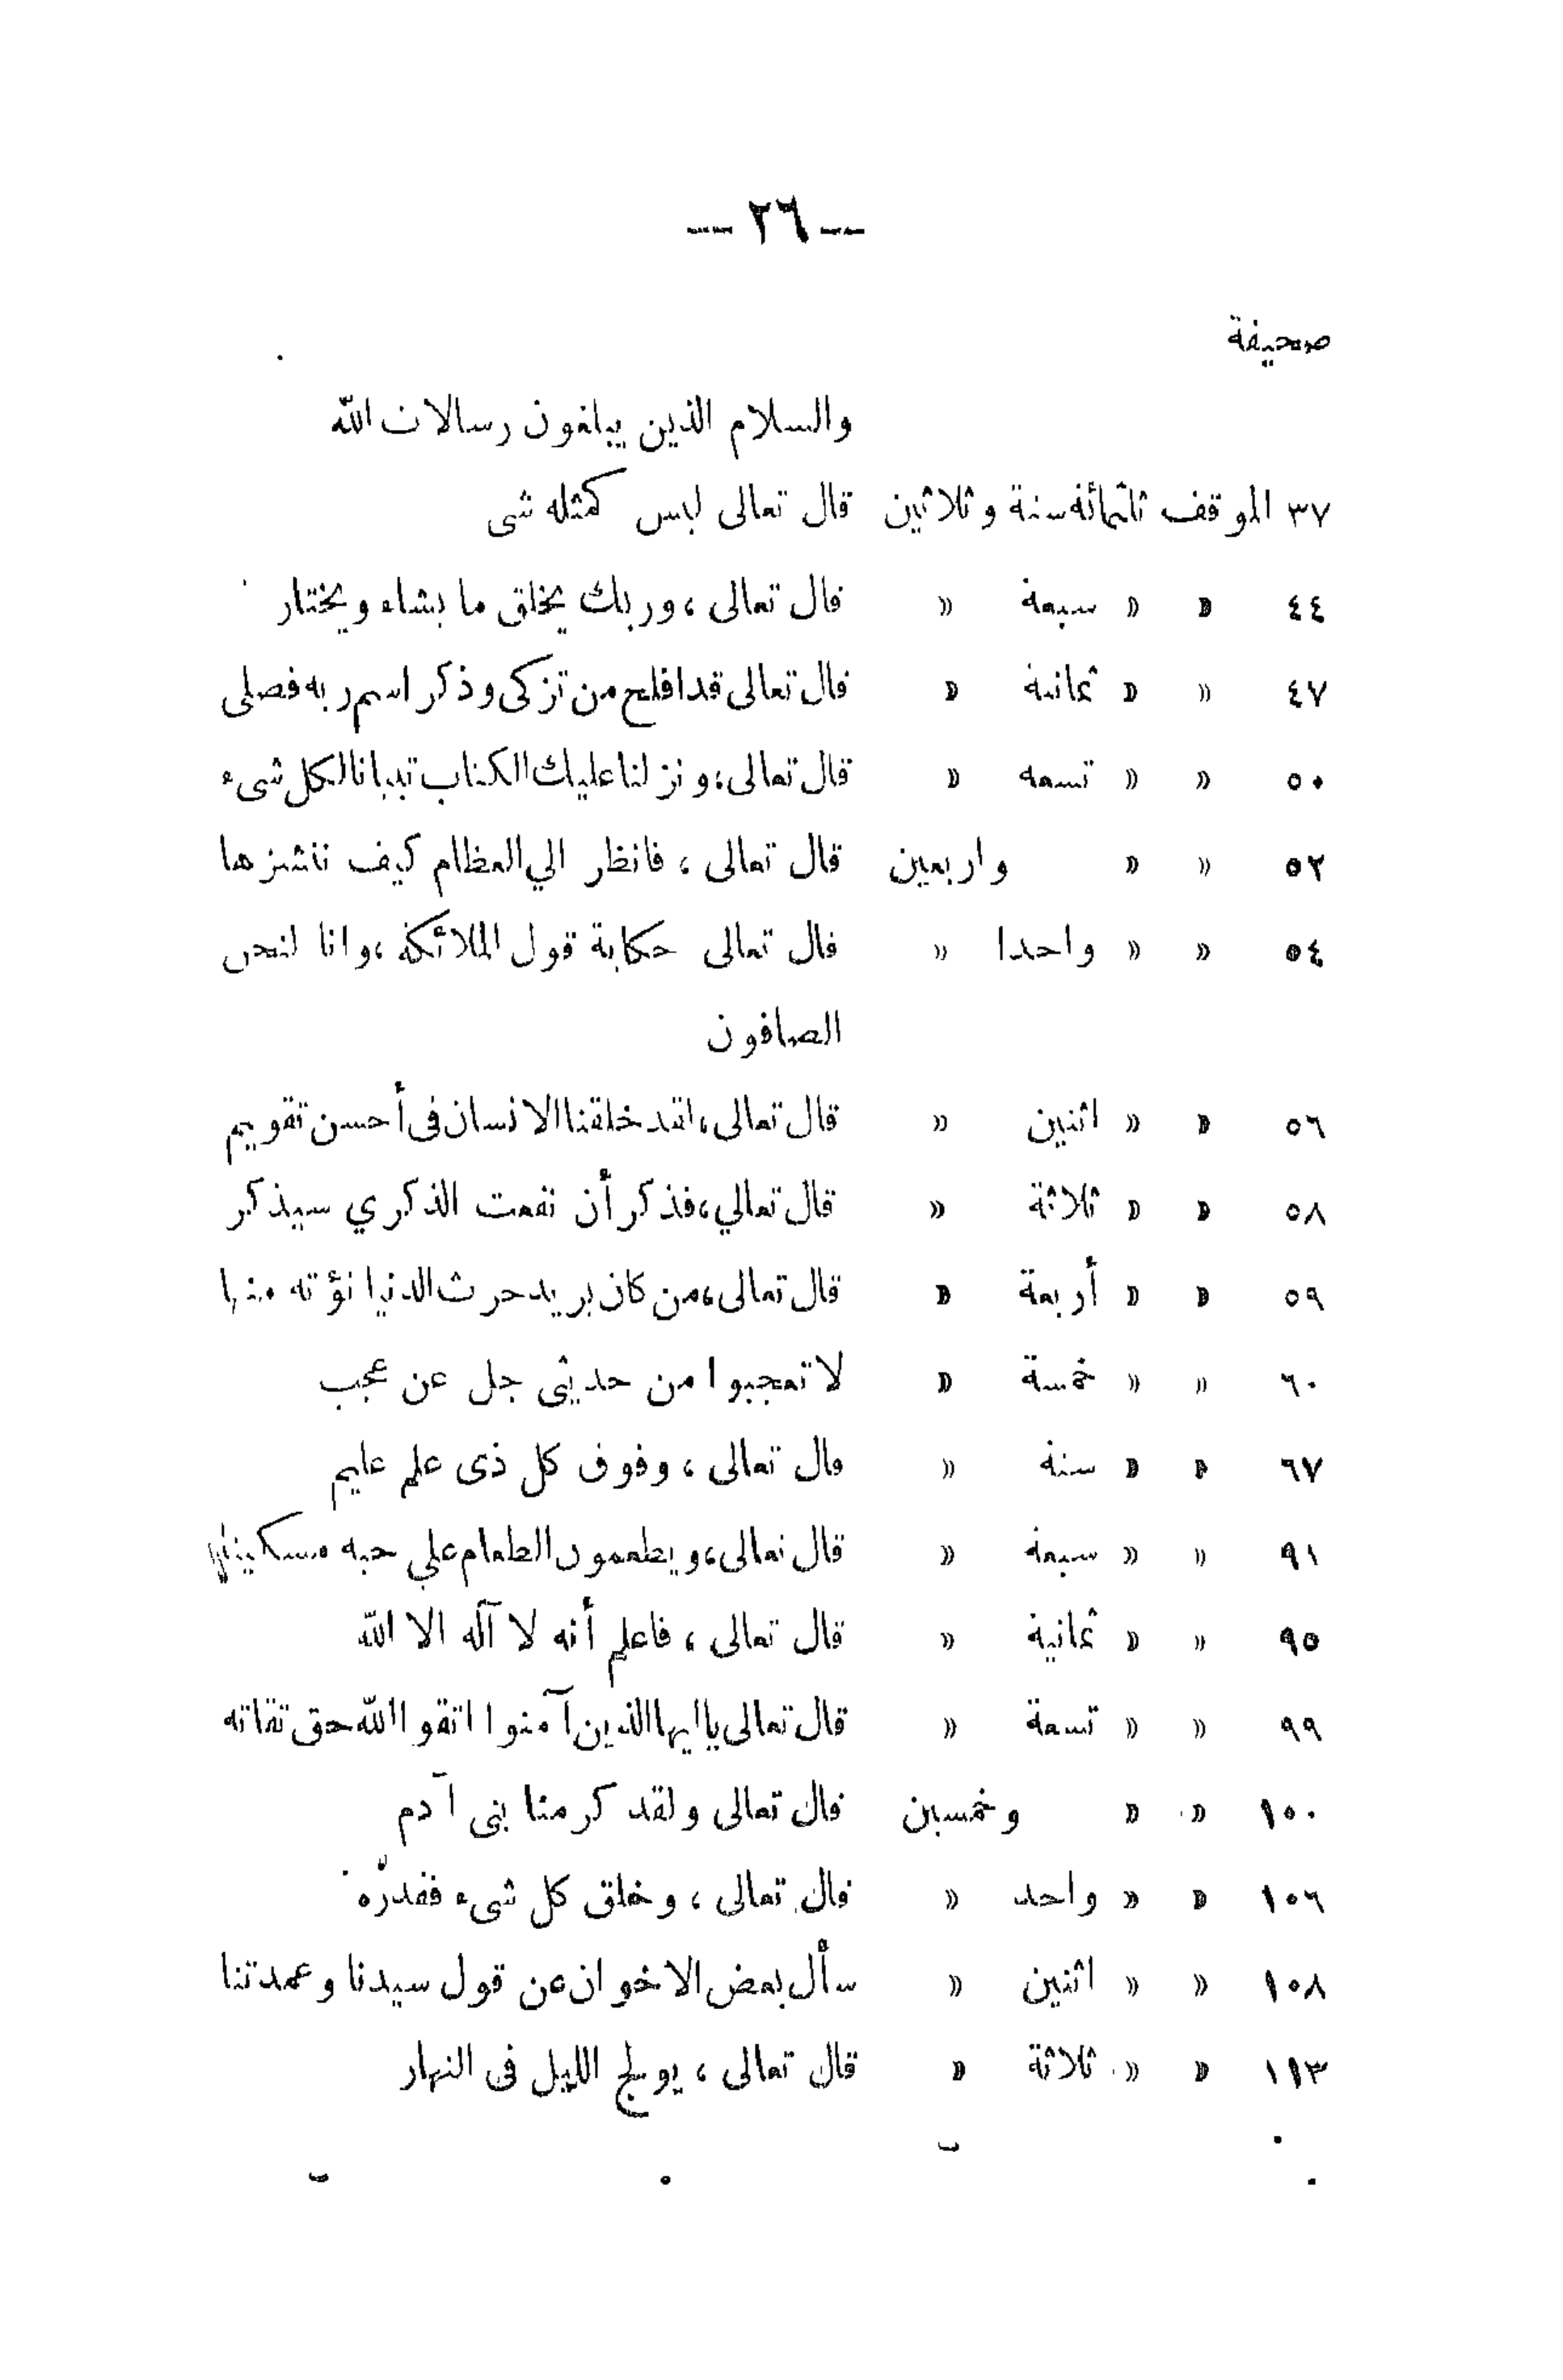 — ٢٦ —
صحيفة
والسلام الذين يبلغون رسالات الله
٣٧ الموقف ثلثمائة ستة وثلاثين قال تعالى ليس كمثله شى
٤٤ » » سبعة » قال تعالى ، وربك يخلق ما يشاء ويختار
٤٧ » » ثمانية » قال تعالى قد افلح من تزكى وذكر اسم ربه فصلى
٥٠ » » تسعة » قال تعالى ، ونزلنا عليك الكتاب تبيانا لكل شىء
٥٢ » » واربعين قال تعالى ، فانظر الي العظام كيف ننشزها
٥٤ » » واحدا » قال تعالى حكاية قول الملائكة ، وانا لنحن
الصافون
٥٦ » » اثنين » قال تعالى ، لقد خلقنا الانسان فى أحسن تقويم
٥٨ » » ثلاثة » قال تعالي ، فذكر أن نفعت الذكري سيذكر
٥٩ » » أربعة » قال تعالى ، من كان يريد حرث الدنيا نؤته منها
٦٠ » » خمسة » لا تعجبوا من حديثى جل عن عجب
٦٧ » » ستة » قال تعالى ، وفوق كل ذى علم عليم
٩١ » » سبعة » قال تعالى ، ويطعمون الطعام علي حبه مسكينا
٩٥ » » ثمانية » قال تعالى ، فاعلم أنه لا آله الا الله
٩٩ » » تسعة » قال تعالى يا ايها الذين آمنوا اتقوا الله حق تقاته
١٠٠ » » وخمسين قال تعالى ولقد كرمنا بنى آدم
١٠٦ » » واحد » قال تعالى ، وخلق كل شىء فقدرّه
١٠٨ » » اثنين » سأل بعض الاخوان عن قول سيدنا وعمدتنا
١١٣ » » ثلاثة » قال تعالى ، يولج الليل فى النهار